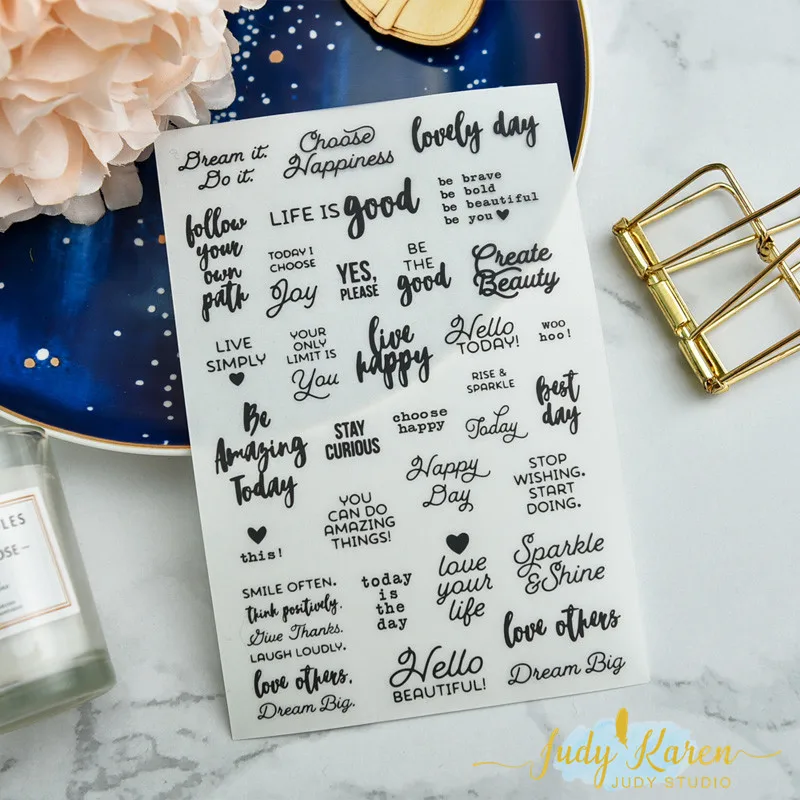 Dream it.
Do it.
Choose
Happiness
lovely day
follow
your
own
path
LIFE IS good
be brave
be bold
be beautiful
be you
TODAY I
CHOOSE
Joy
YES,
PLEASE
BE
THE
good
Create
Beauty
LIVE
SIMPLY
YOUR
ONLY
LIMIT IS
You
live
happy
Hello
TODAY!
woo
hoo!
RISE &
SPARKLE
Be
Amazing
Today
STAY
CURIOUS
choose
happy
Today
Best
day
this!
YOU
CAN DO
AMAZING
THINGS!
Happy
Day
STOP
WISHING.
START
DOING.
SMILE OFTEN.
Think positively.
Give Thanks.
LAUGH LOUDLY.
love others.
Dream Big.
today
is
the
day
love
your
life
Sparkle
& Shine
Hello
BEAUTIFUL!
love others
Dream Big
Judy Karen
JUDY STUDIO